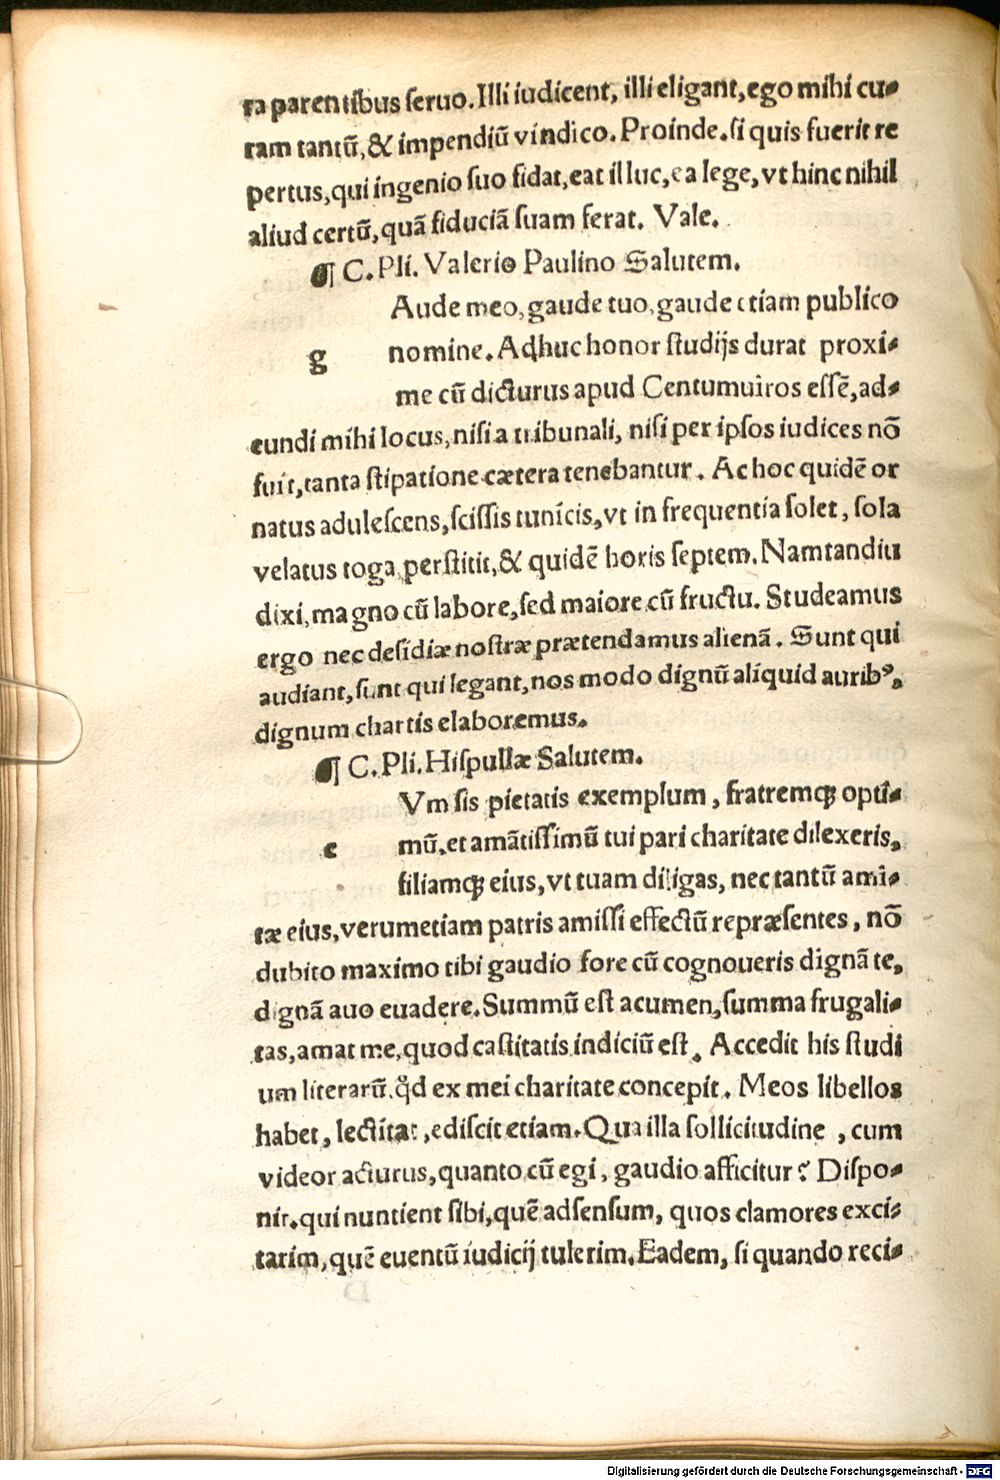 ra parentibus ſeruo. Illi iudicent, illi eligant, ego mihi cu-
ram tantū, & impendiū vindico. Proinde. ſi quis fuerit re
pertus, qui ingenio ſuo fidat, eat illuc, ea lege, vt hinc nihil
aliud certū, quā fiduciā ſuam ferat. Vale.
¶ C. Pli. Valerio Paulino Salutem.
Aude meo, gaude tuo, gaude etiam publico
g nomine. Adhuc honor ſtudijs durat proxi-
me cū dicturus apud Centumuiros eſſē, ad-
eundi mihi locus, niſi a tribunali, niſi per ipſos iudices nō
fuit, tanta ſtipatione cætera tenebantur. Ac hoc quidē or
natus aduleſcens, ſciſſis tunicis, vt in frequentia ſolet, ſola
velatus toga perſtitit, & quidē horis ſeptem. Nam tandiu
dixi, magno cū labore, ſed maiore cū fructu. Studeamus
ergo nec deſidiæ noſtræ prætendamus alienā. Sunt qui
audiant, ſunt qui legant, nos modo dignū aliquid auribꝰ,
dignum chartis elaboremus.
¶ C. Pli. Hiſpullæ Salutem.
Vm ſis pietatis exemplum, fratremqꝫ opti-
c mū. et amātiſſimū tui pari charitate dilexeris,
filiamqꝫ eius, vt tuam diligas, nec tantū ami-
tæ eius, verumetiam patris amiſſi effectū repræſentes, nō
dubito maximo tibi gaudio fore cū cognoueris dignā te,
dignā auo euadere. Summū eſt acumen, ſumma frugali-
tas, amat me, quod caſtitatis indiciū eſt. Accedit his ſtudi
um literarū. qd̓ ex mei charitate concepit. Meos libellos
habet, lectitat, ediſcit etiam. Qua illa ſollicitudine, cum
videor acturus, quanto cū egi, gaudio afficitur? Diſpo-
nit. qui nuntient ſibi, quē adſenſum, quos clamores exci-
tarim, quē euentū iudicij tulerim. Eadem, ſi quando reci-
Digitalisierung gefördert durch die Deutsche Forschungsgemeinschaft - DFG